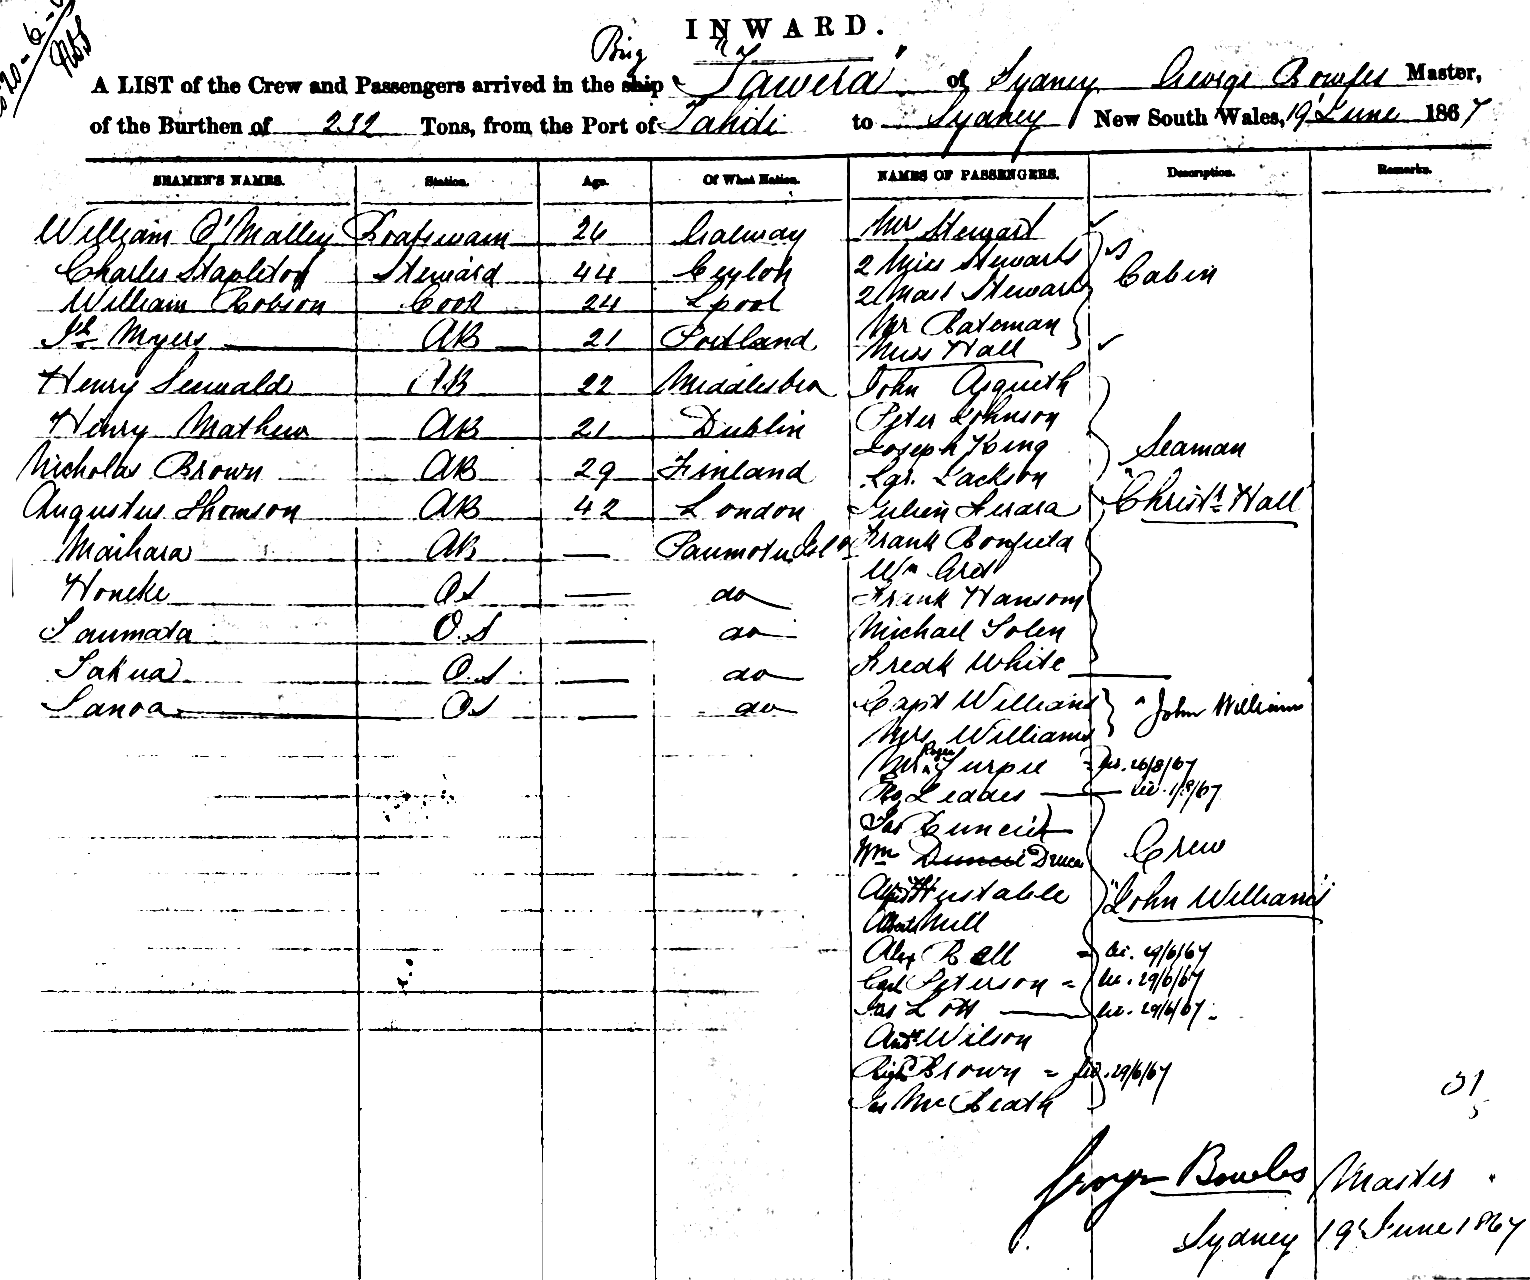 INWARD.
Brig "Tawera"
A LIST of the Crew and Passengers arrived in the ship of Sydney George Bowles Master,
of the Burthen of 232 Tons, from the Port of Tahiti to Sydney New South Wales, 19 June 1867
SEAMEN'S NAMES. Station. Age. Of What Nation. NAMES OF PASSENGERS. Description. Remarks.
William O'Malley Boatswain 26 Galway Mrs Stewart
Charles Stapleton Steward 44 Ceylon 2 Miss Stewarts Cabin
William Robson Cook 24 Lpool 2 Mast Stewart
Myers AB 21 Portland Mr Bateman
Miss Hall
Henry AB 22 Middlesbro John Asquith
Henry Mathew AB 21 Dublin Peter Johnson
Joseph King Seaman
Nicholas Brown AB 29 Finland Jackson
Augustus Thomson AB 42 London Julien "Christn Hall
Maihara AB — Paumotu Isl Frank Bonfield
Wm
Honeke OS — do Frank Hansom
Taumata O.S — do Michael Tolen
Takua O.S — do Fredk White
Tanoa OS — do Capt Williams "John Williams
Mrs Williams
Mr Roger Turpie 26/8/67
Leades 1/8/67
Jas
Wm Crew
Hustable "John Williams"
Mill
Alex Bell 29/6/67
Carl Peterson = 29/6/67
Jas Lott 29/6/67
Wilson
Brown = 29/6/67
Jas McBeath
31
5
George Bowles Master
Sydney 19 June 1867